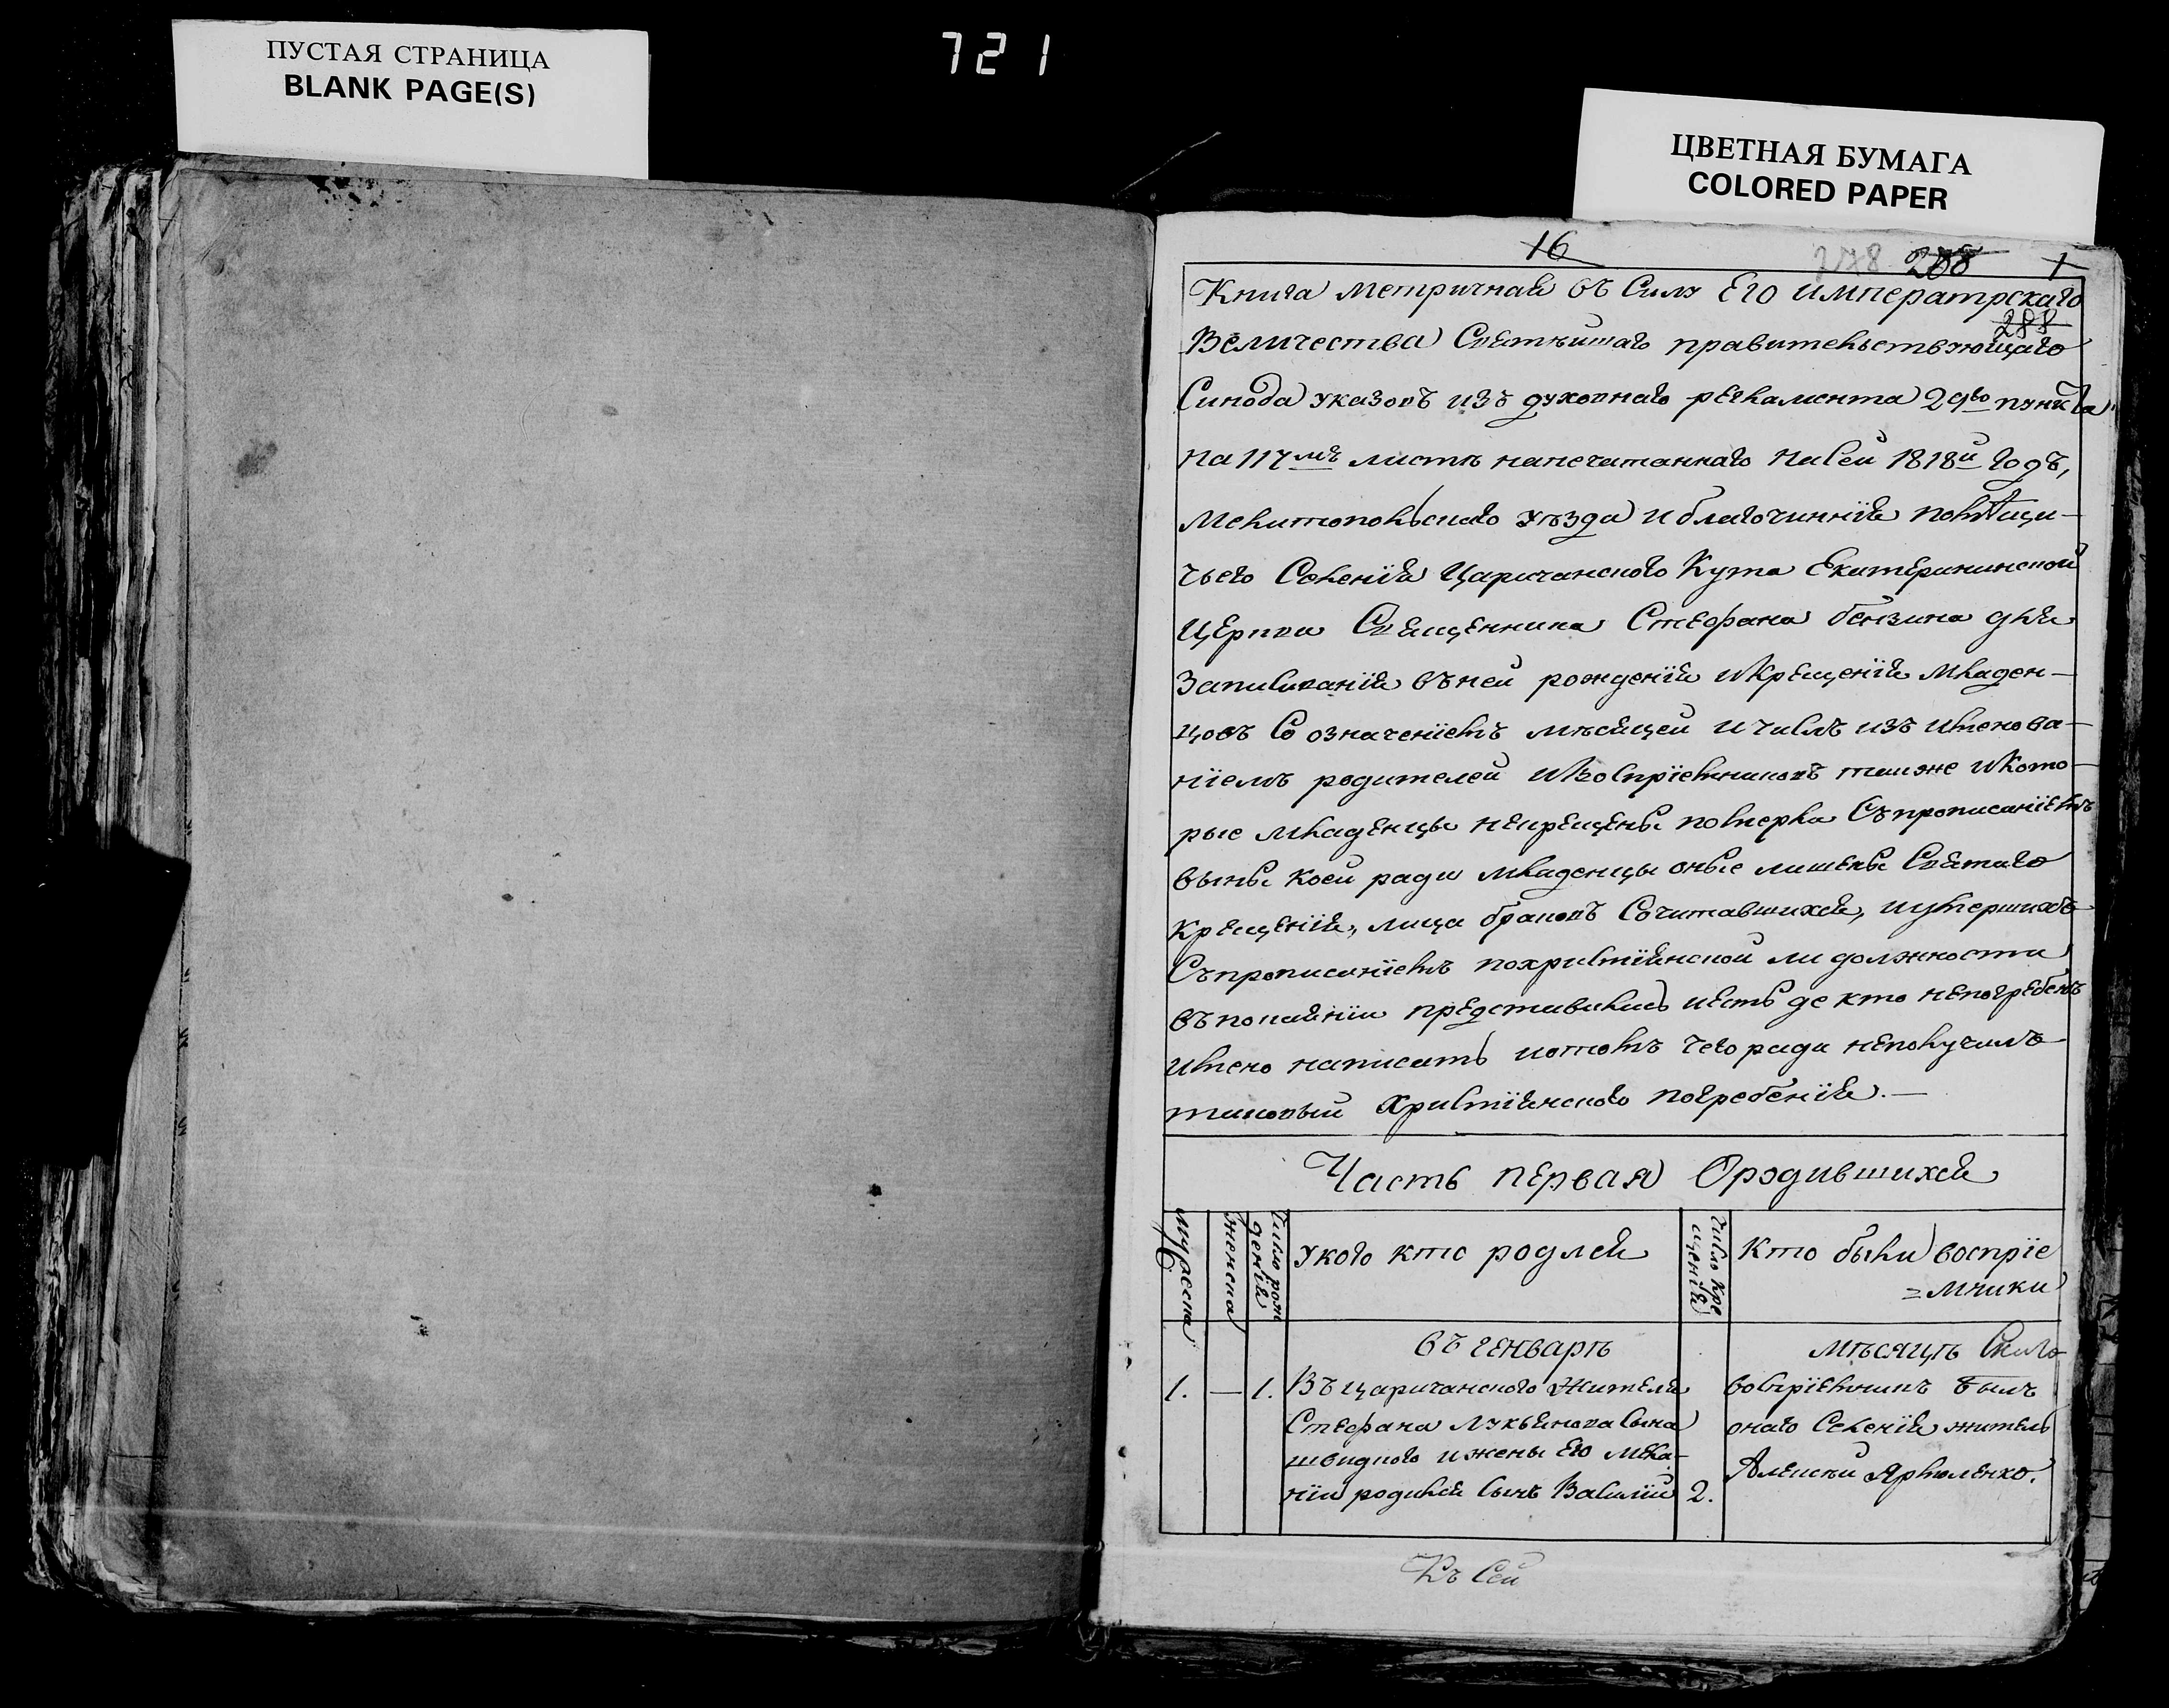 ПУСТАЯ СТРАНИЦА
BLANK PAGE(S)
721
ЦВЕТНАЯ БУМАГА
COLORED PAPER
16
278 288 1
Книга метричная въ Силу Его императрскаго
288
Величества Святѣишаго правительствующаго
Синода указовъ изъ духовнаго регламента 29го пункта
на 117мъ листѣ напечатаннаго на сей 1818й годъ,
Мелитопольскаго уѣзда и благочиния
чьего Селенїя Царичанского Кута Екатерининской
Церкви Священника Стефана бензина для
Записиванїя въ ней рожденїя и Крещенїя младен-
цовъ Со означенїемъ мѣсяцей и числъ изъ именова-
нїемъ родителей и Воспрїемниковъ также и Кото-
рые младенцы некрещены померли Съ прописанїемъ
вины коей ради младенцы оные лишены Святаго
Крещенїя, лица браковъ Сочитавшихся, и умершихъ
Съ прописанїемъ по християнской ли должности
въ покаянїи представились и есть де кто непогребенъ
имено написать и о томъ чего ради неполучилъ
таковый Християнского погребенїя. —
Часть первая О родившихся
мужеска
женска
Число рож
денїя
У кого кто родлся
Число Кре
щенїя
Кто были воспрїе
=мники
въ генварѣ
мѣсяцѣ
1. — 1. Въ царичанского Жителя
Стефана Лукьянова Сына
швидкого и жены Его Мела-
нїи родился Сынъ Василїй 2.
воспрїемникъ былъ
онаго Селенїя житель
Алексѣй Ярмоленко.
Къ Сей